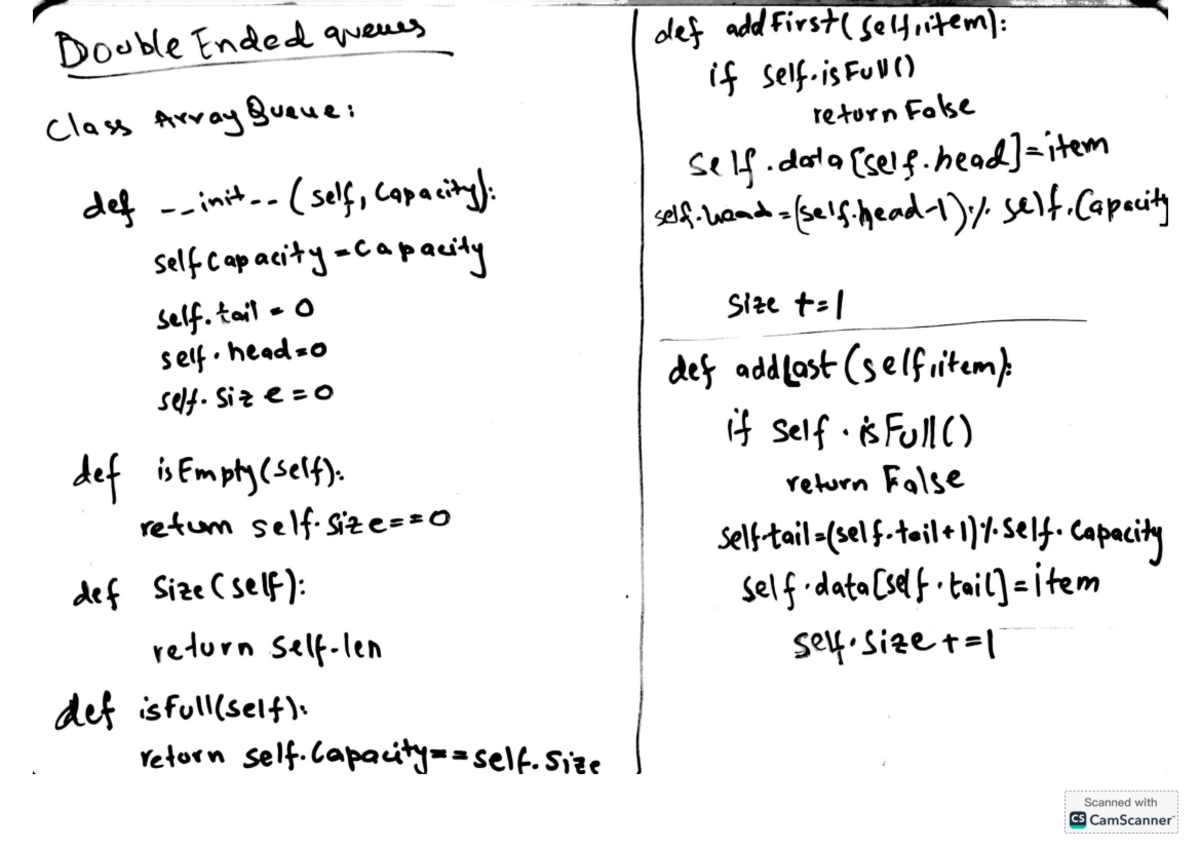 Double Ended queues
Class ArrayQueue:
def __init-- (self, Capacity):
self capacity = capacity
self.tail = 0
self.head=0
self.size=0
def isEmpty(self):
return self.size==0
def Size(self):
return self-len
def isfull(self):
return self.Capacity==self.Size
def addFirst(self,item):
if self.isFull()
return False
Self.data[self.head]=item
self.head=(self.head-1)% self.Capacity
Size +=1
def addLast(self,item):
if Self.isFull()
return False
Self-tail=(self.tail+1)%Self.Capacity
Self.data[self.tail]=item
Self.Size+=1
Scanned with
CS CamScanner